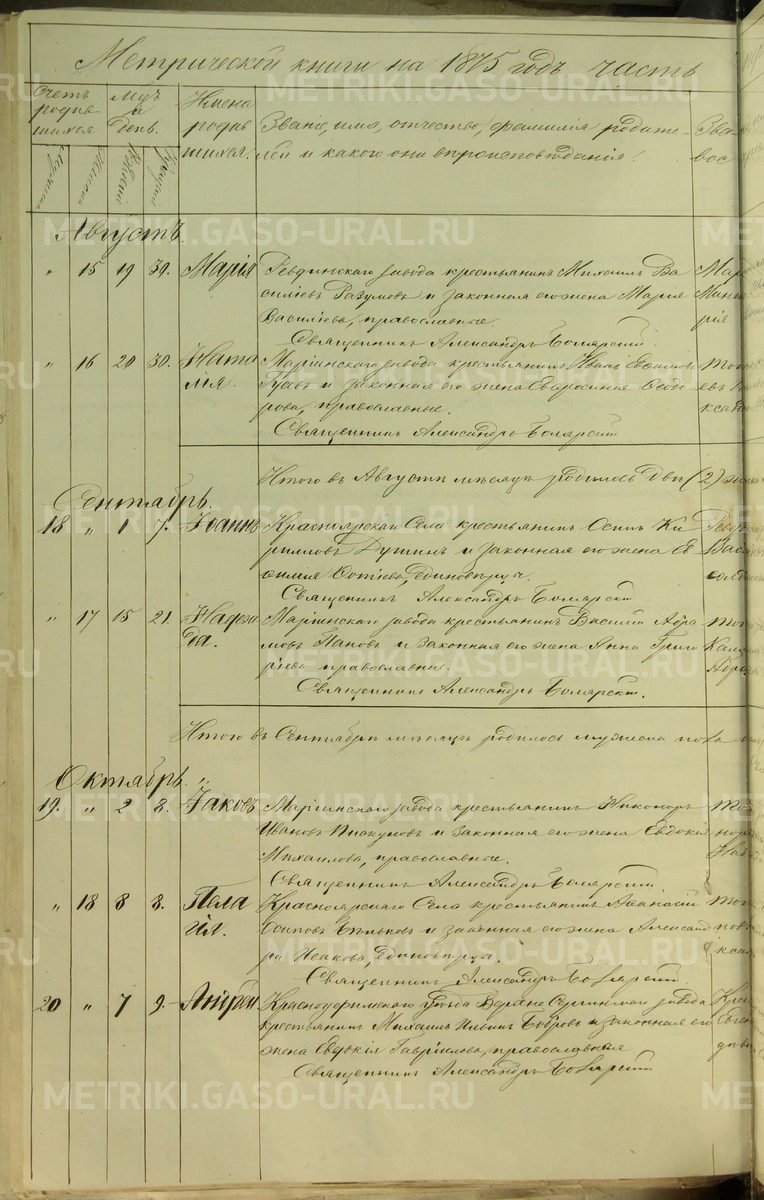 Метрической книги на 1875 годъ часть
Счетъ родив-шихся.
Муж
Женск
Мѣц и день.
Рожденія
Крещенія
Имена родив шихся.
Званіе, имя, отчество, фамилія родите-
лей и какого они вѣроисповѣданія.
Зван
вос
Августъ.
" 15 19 30. Марія Ревдинскаго завода крестьянинъ Михаилъ Ва
сильевъ Разумовъ и законная его жена Марія
Василіева, православные.
Священникъ Александръ Боярскій
" 16 20 30. Ната
лія. Маріинскаго завода крестьянинъ
Гусевъ и законная его жена Евфросинія Ѳедо
рова, православные.
Священникъ Александръ Боярскій
Итого въ Августѣ мѣсяцѣ родилось двѣ (2)
Сентябрь.
18 " 1 7. Іоаннъ Красноярскаго Села крестьянинъ Осипъ Ки
риловъ и законная его жена Ев
ѳимія единовѣрцы.
Священникъ Александръ Боярскій
" 17 15 21. Надеж
да. Маріинскаго завода крестьянинъ Василій Абра
мовъ Паповъ и законная его жена Анна Григо
ріева православные.
Священникъ Александръ Боярскій.
Итого въ Сентябрѣ мѣсяцѣ родилось мужеска пола
Октябрь.
19. " 2 8. Іаковъ Маріинскаго завода крестьянинъ Никоноръ
Ивановъ Пискуновъ и законная его жена Евдокія
Михаилова, православные.
Священникъ Александръ Боярскій.
" 18 8 8. Пела
гія. Красноярскаго Села крестьянинъ Аѳанасій
Осиповъ и законная его жена Александ
ра Исакова, единовѣрцы.
Священникъ Александръ Боярскій
20 " 7 9. Андрей Красноуфимскаго уѣзда Верхне Сергинскаго завода
крестьянинъ Михаилъ Ильинъ Бобровъ и законная его
жена Евдокія Гавріилова, православные
Священникъ Александръ Боярскій
METRIKI.GASO-URAL.RU